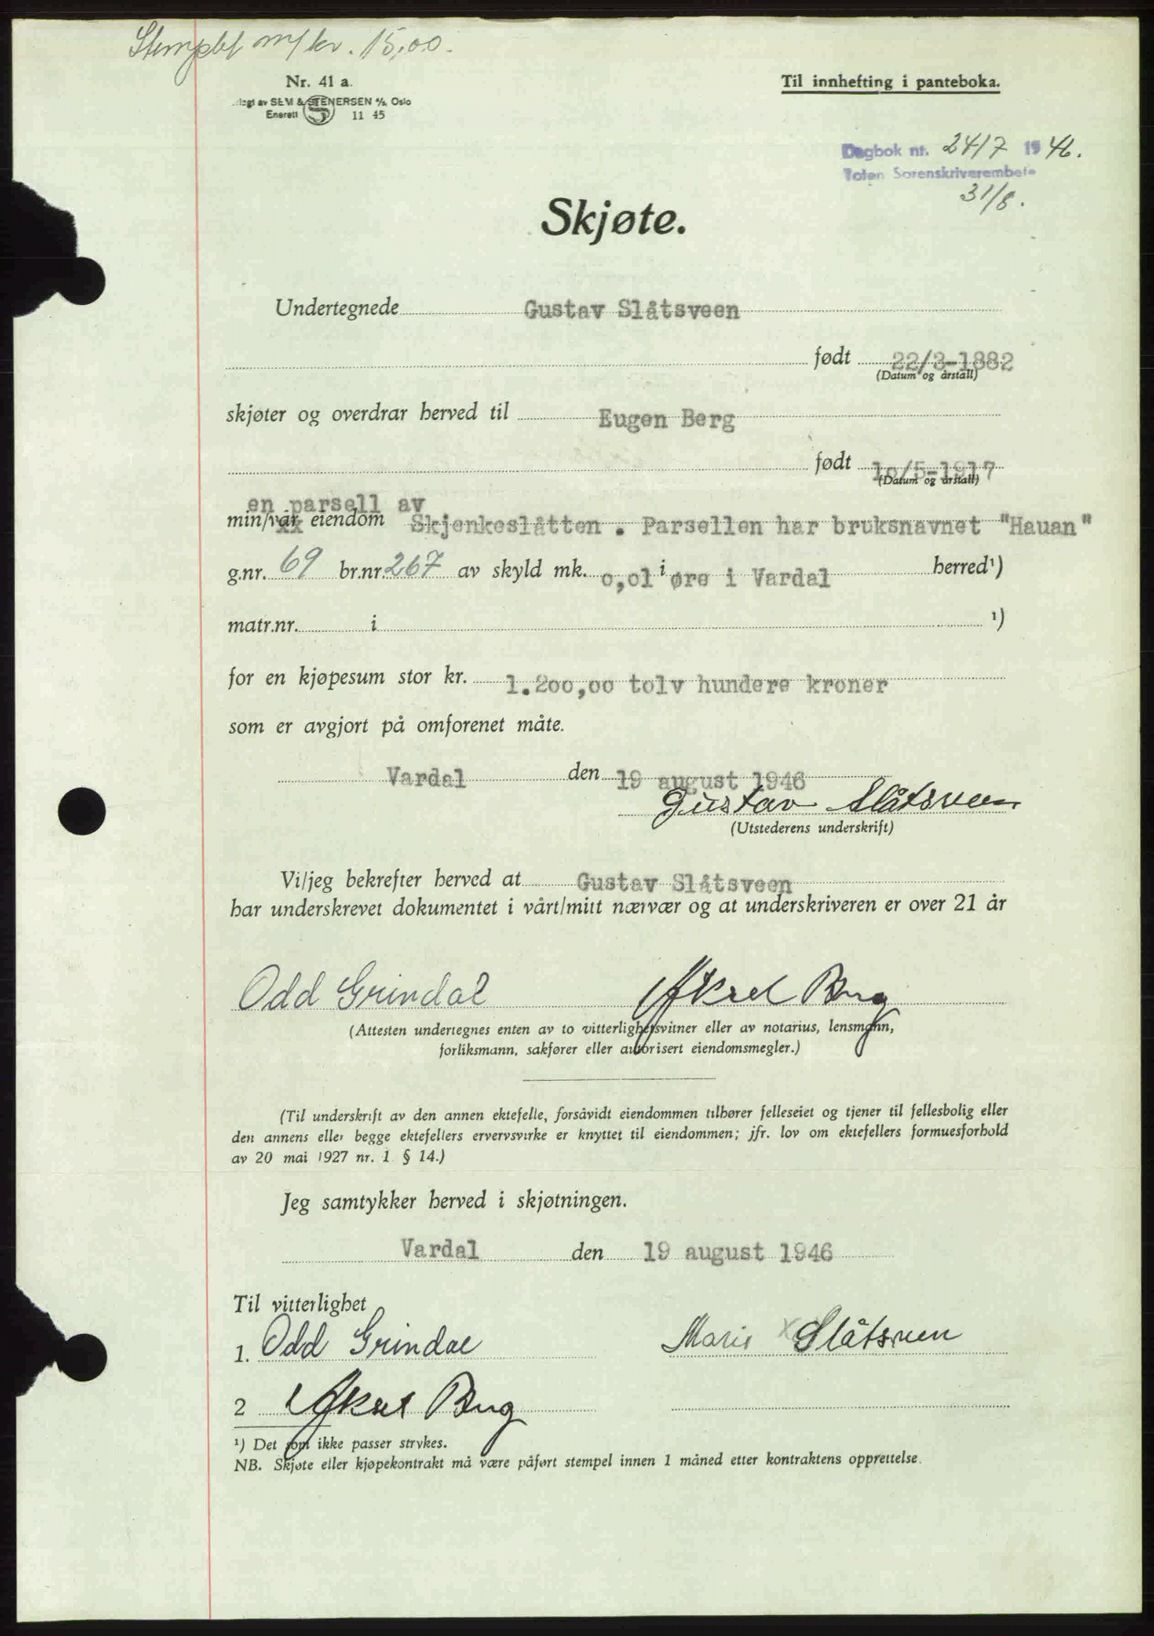 Stemplet m/kr. 15,00.
Nr. 41 a.
SEM & STENERSEN A/S, Oslo
Enerett 11 45
Til innhefting i panteboka.
Dagbok nr. 2417 1946.
Toten Sorenskriverembete
31/8.
Skjøte.
Undertegnede Gustav Slåtsveen
født 22/3-1882
(Datum og årstall)
skjøter og overdrar herved til Eugen Berg
født 10/5-1917
(Datum og årstall)
en parsell av
min/vår eiendom Skjenkeslåtten. Parsellen har bruksnavnet "Hauan"
g.nr. 69 br.nr. 267 av skyld mk. o,o1 øre i i Vardal herred¹)
matr.nr. i ¹)
for en kjøpesum stor kr. 1.200,oo tolv hundere kroner
som er avgjort på omforenet måte.
Vardal den 19 august 1946
Gustav Slåtsveen
(Utstederens underskrift)
Vi/jeg bekrefter herved at Gustav Slåtsveen
har underskrevet dokumentet i vårt/mitt nærvær og at underskriveren er over 21 år
Odd Grindal Aksel Berg
(Attesten undertegnes enten av to vitterlighetsvitner eller av notarius, lensmann,
forliksmann, sakfører eller autorisert eiendomsmegler.)
(Til underskrift av den annen ektefelle, forsåvidt eiendommen tilhører felleseiet og tjener til fellesbolig eller
den annens eller begge ektefellers ervervsvirke er knyttet til eiendommen; jfr. lov om ektefellers formuesforhold
av 20 mai 1927 nr. 1 § 14.)
Jeg samtykker herved i skjøtningen.
Vardal den 19 august 1946
Til vitterlighet
1. Odd Grindal Marie Slåtsveen
2 Aksel Berg
¹) Det som ikke passer strykes.
NB. Skjøte eller kjøpekontrakt må være påført stempel innen 1 måned etter kontraktens opprettelse.